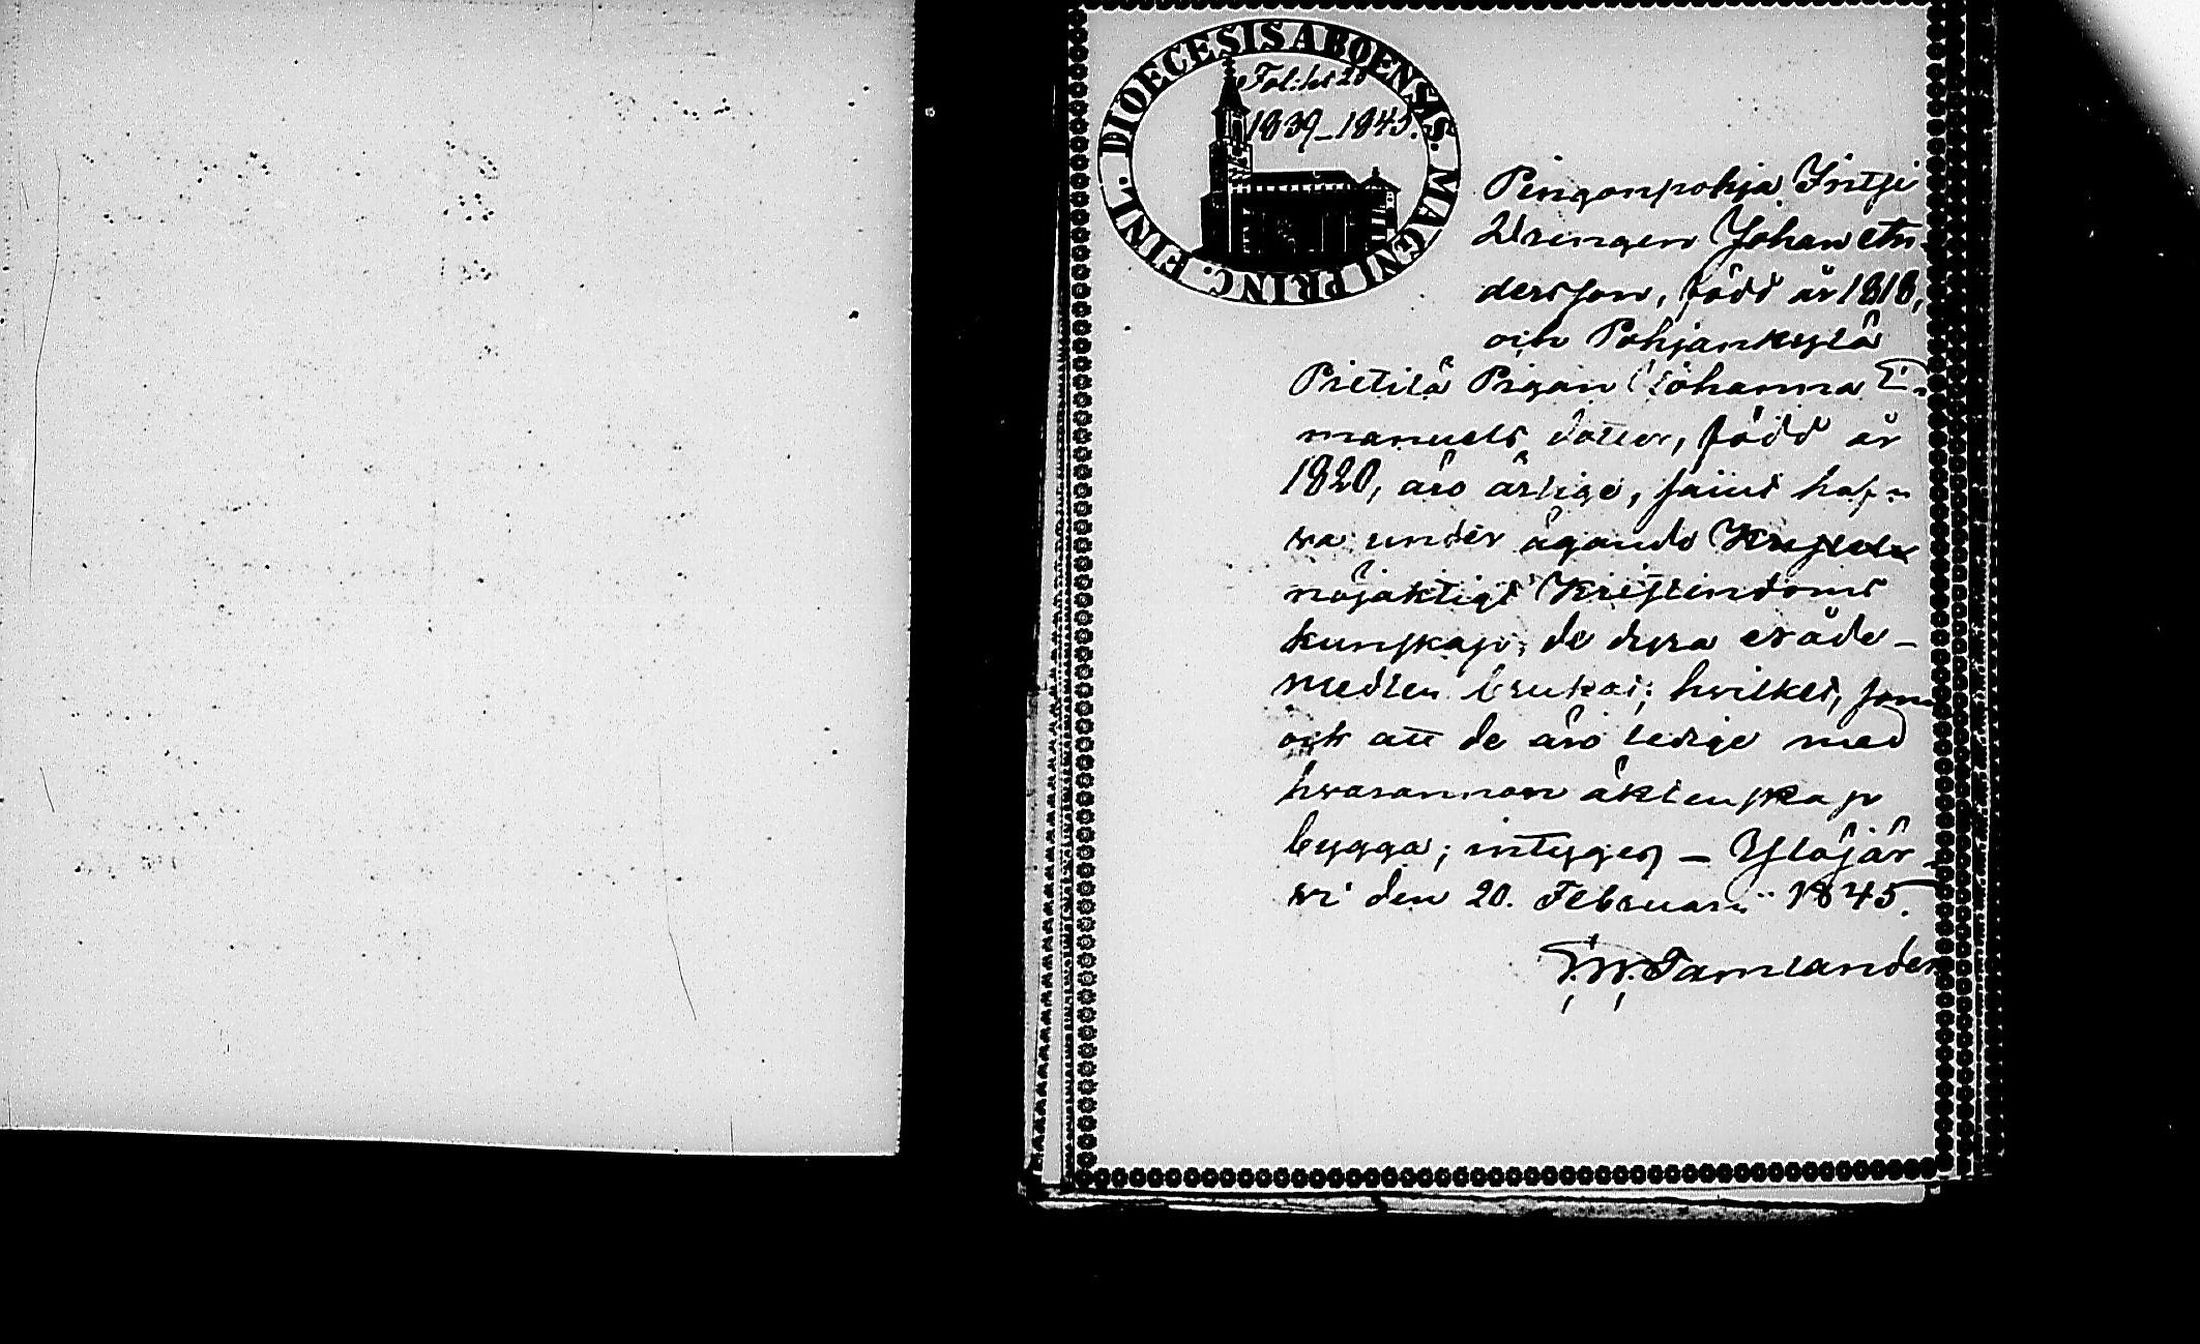 DIOECESIS ABOENSIS. MAGNI PRINC. FINL.
Fol:
1839_1845.
Pengonpohja Inttji
Drengen Johan An-
dersson, född år 1818,
och Pohjankylä
Pietilä Pigan Johanna E-
manuels dotter, född år
1820, äro ärlige, samt haf-
va under ägande
nöjaktigt Kristendoms
kunskap, de dyra nåde-
medlen brukat; hvilket, som
och att de äro ledige med
hvarannan äktenskap
bygga; intyges _ Ylöjär-
vi den 20. Februarii 1845.
Tamlander